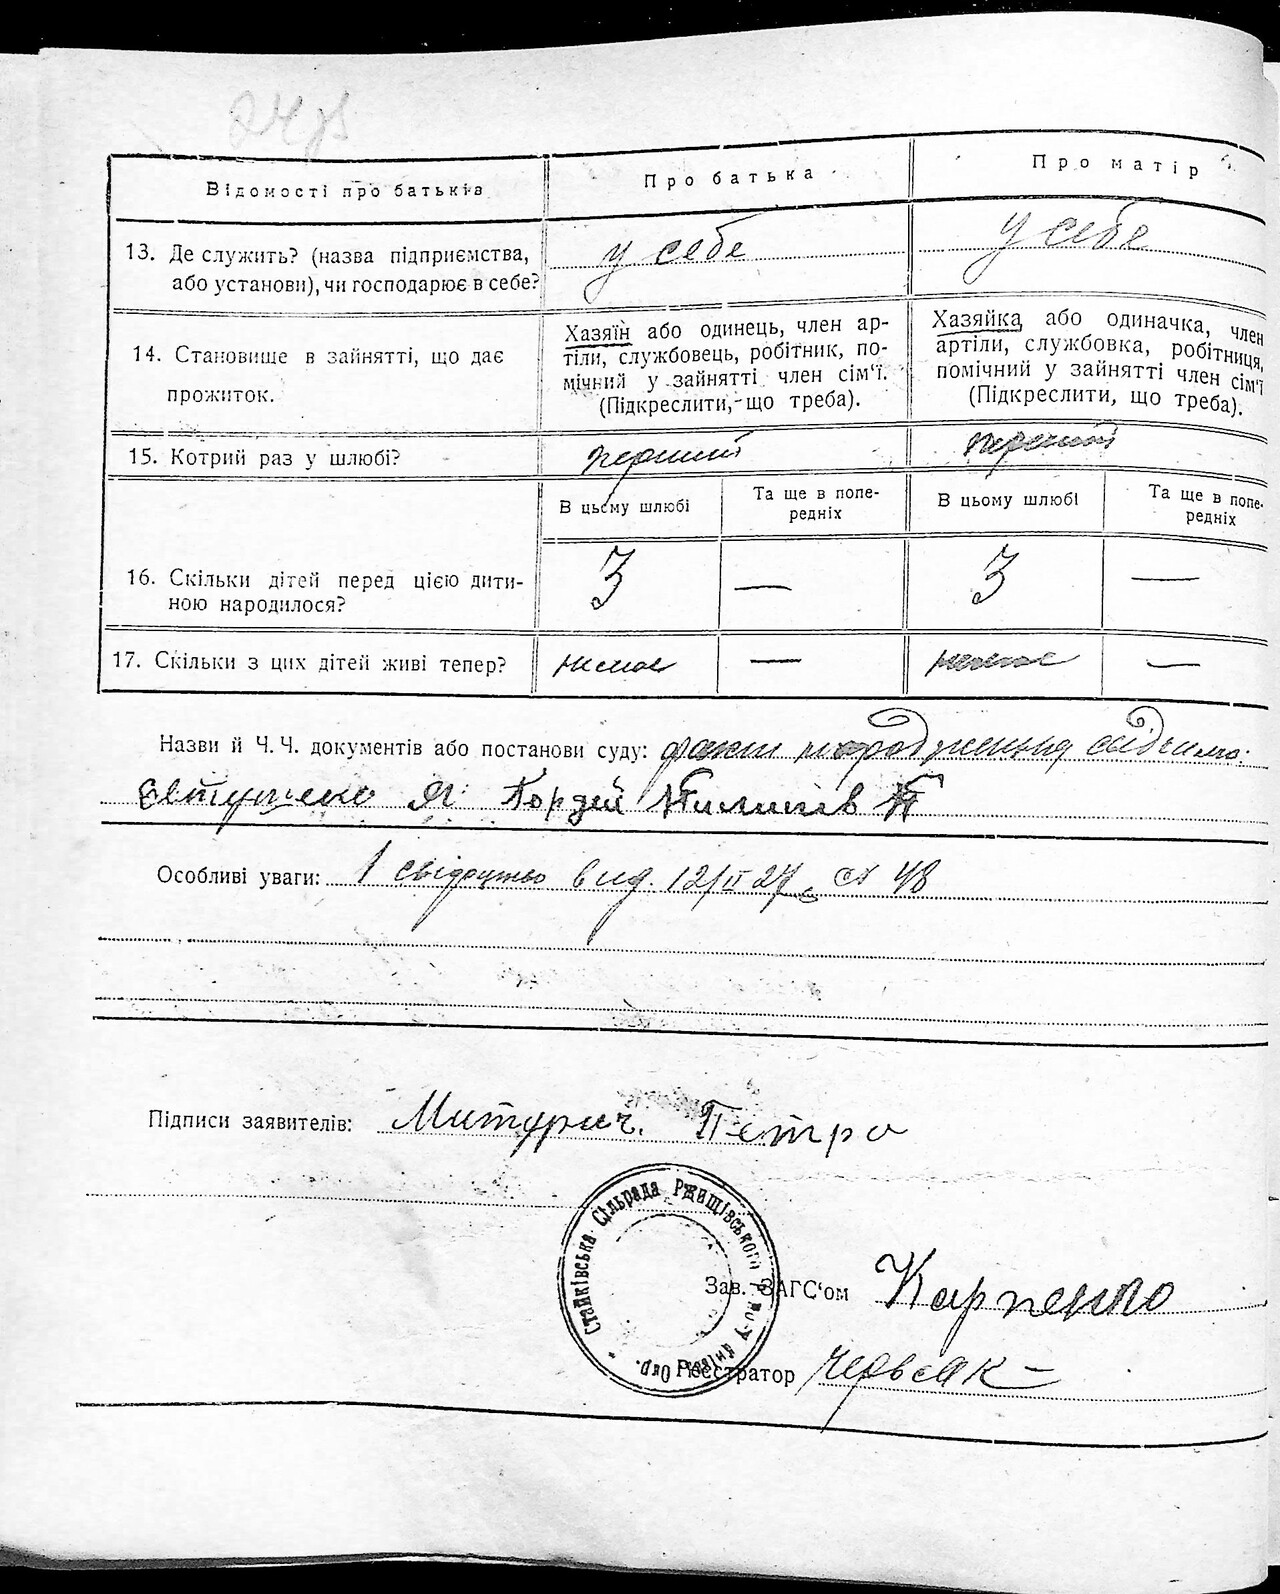 24 зв
Відомості про батьків
Про батька
Про матір
13. Де служить? (назва підприємства,
або установи), чи господарює в себе?
у себе
у себе
14. Становище в зайнятті, що дає
прожиток.
Хазяїн або одинець, член ар-
тіли, службовець, робітник, по-
мічний у зайнятті член сім'ї.
(Підкреслити, що треба).
Хазяйка або одиначка, член
артіли, службовка, робітниця,
помічний у зайнятті член сім'ї
(Підкреслити, що треба).
15. Котрий раз у шлюбі?
перший
перший
В цьому шлюбі
Та ще в попе-
редніх
В цьому шлюбі
Та ще в попе-
редніх
16. Скільки дітей перед цією дити-
ною народилося?
3 —
3 —
17. Скільки з цих дітей живі тепер?
немає —
немає —
Назви й Ч. Ч. документів або постанови суду: факт народження
Гордей Пилипів
Особливі уваги: 1 свідоцтво вид. 12/II 27 48
Підписи заявителів: Митурич. Петро
Стайківська Сільрада Ржищівського Р-ну У Київск. Окр.
Зав. ЗАГС'ом Карпенко
Реєстратор Червяк